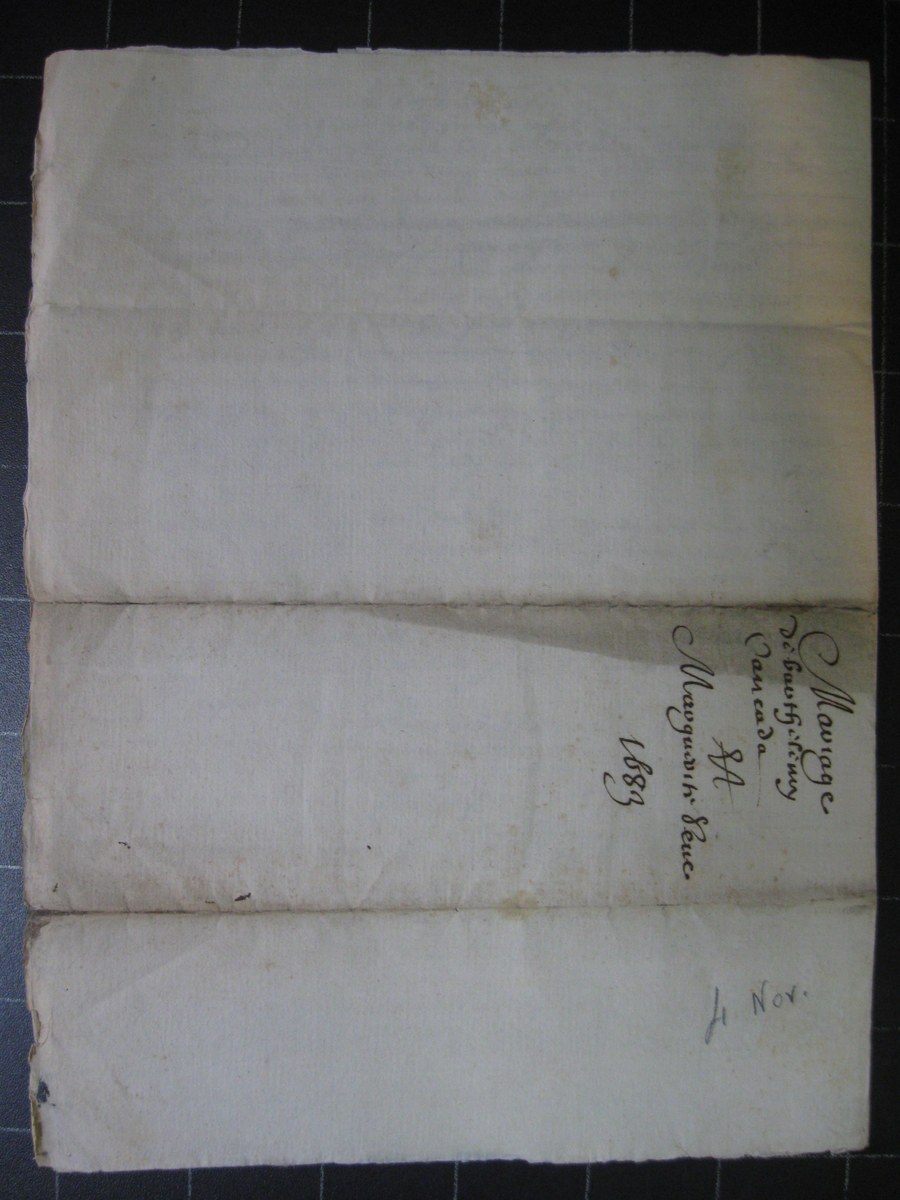 Mariage
de barthelemy
Cancada
&A
Marguerite Seuc.
1683
No.